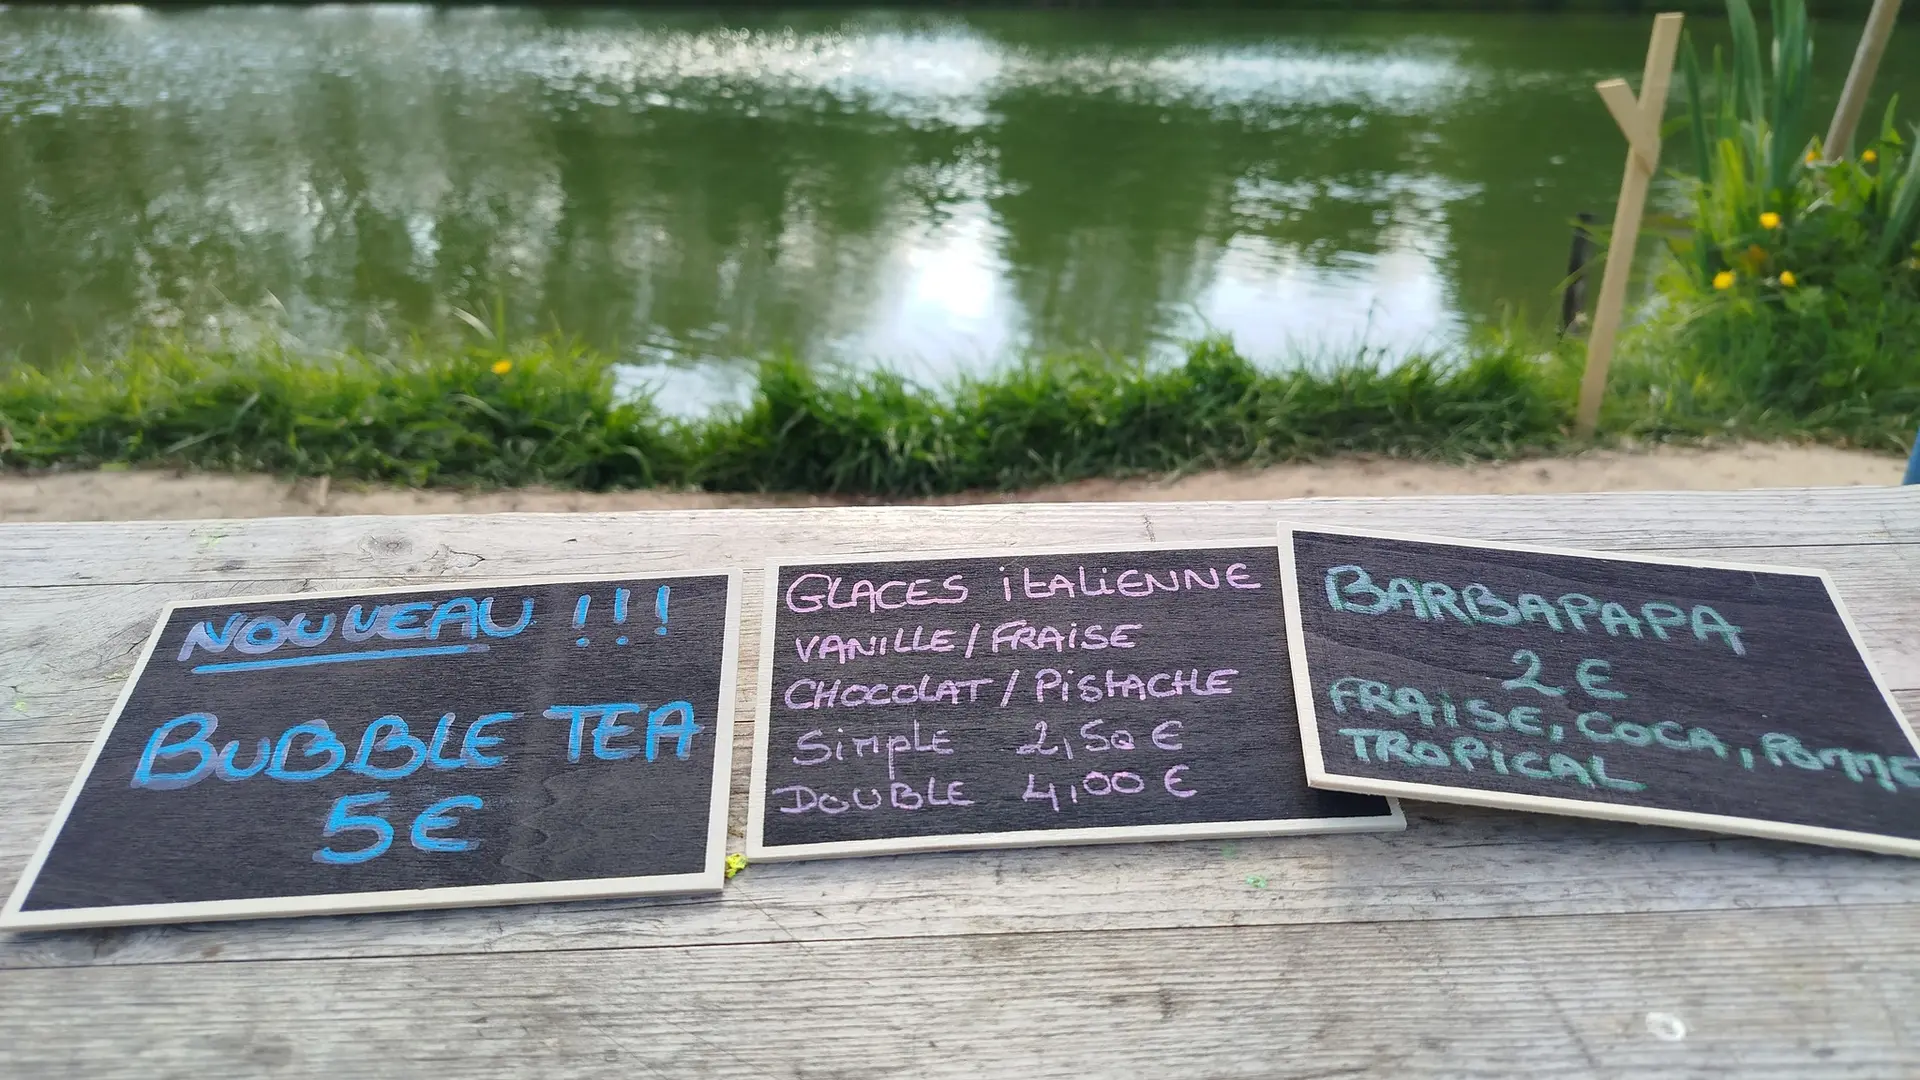 NOUVEAU !!!
BUBBLE TEA
5€
GLACES iTALiENNE
VANiLLE/FRAiSE
CHOCOLAT/PiSTACHE
SimplE 2,50 €
DOUBLE 4,00 €
BARBAPAPA
2€
FRAiSE, COCA, POMME
TROPiCAL